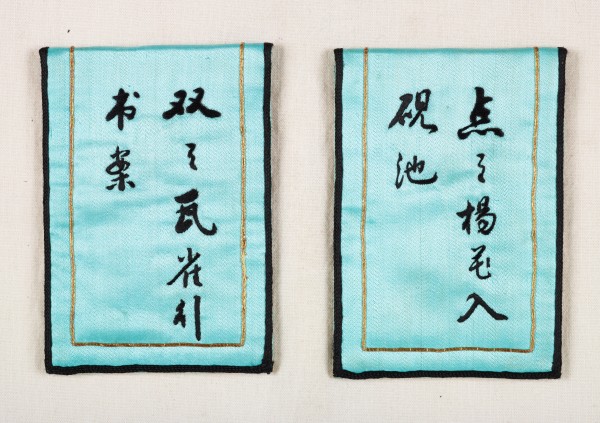 双〻瓦雀行
书案
点〻楊花入
硯池